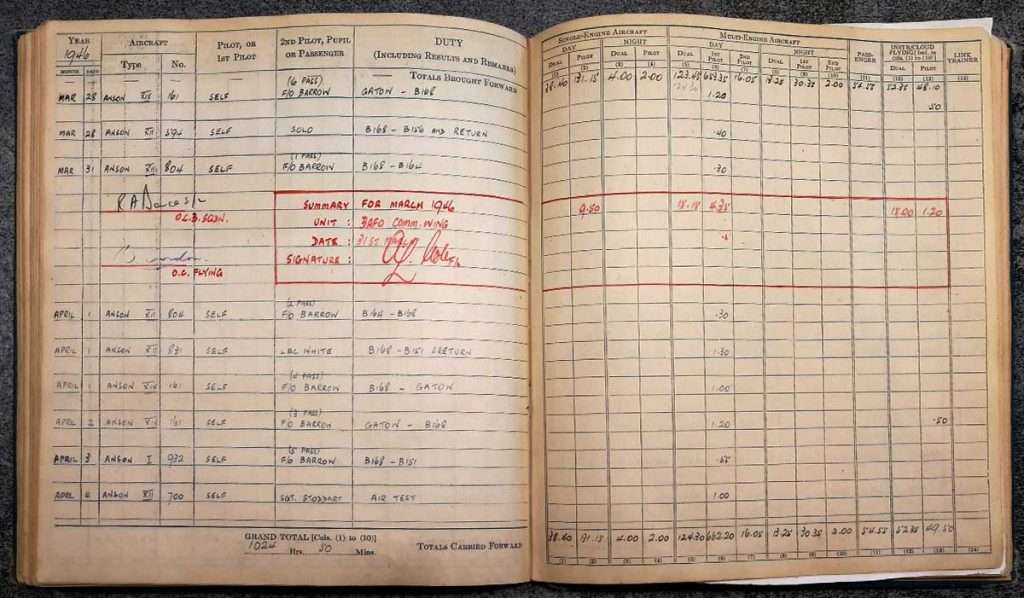 YEAR AIRCRAFT PILOT, OR 2ND PILOT, PUPIL DUTY
1946 1ST PILOT OR PASSENGER (INCLUDING RESULTS AND REMARKS)
MONTH DATE Type No.
— — — — TOTALS BROUGHT FORWARD
(6 PASS)
MAR 28 ANSON XII 161 SELF F/O BARROW GATON - B168
MAR 28 ANSON XII 594 SELF SOLO B168 - B156 AND RETURN
(1 PASS)
MAR 31 ANSON XII 804 SELF F/O BARROW B168 - B164
SUMMARY FOR MARCH 1946
O.C.3.SQDN. UNIT : COMM. WING
DATE : 31ST
SIGNATURE :
O.C. FLYING
(2 PASS)
APRIL 1 ANSON XII 804 SELF F/O BARROW B164 - B168
APRIL 1 ANSON XII 831 SELF LAC WHITE B168 - B151 & RETURN
APRIL 1 ANSON XII 161 SELF F/O BARROW B168 - GATON
(3 PASS)
APRIL 2 ANSON XII 161 SELF F/O BARROW GATON - B168
(5 PASS)
APRIL 3 ANSON I 932 SELF F/O BARROW B168 - B151
APRIL 4 ANSON XII 700 SELF SGT. STODDART AIR TEST
GRAND TOTAL [Cols. (1) to (10)]
1024 Hrs. 50 Mins. TOTALS CARRIED FORWARD
SINGLE-ENGINE AIRCRAFT MULTI-ENGINE AIRCRAFT PASS-ENGER INSTR/CLOUD FLYING [Incl. in cols. (1) to (10)] LINK TRAINER
DAY NIGHT DAY NIGHT
DUAL PILOT DUAL PILOT DUAL 1ST PILOT 2ND PILOT DUAL 1ST PILOT 2ND PILOT DUAL PILOT
(1) (2) (3) (4) (5) (6) (7) (8) (9) (10) (11) (12) (13) (14)
38.40 131.15 4.00 2.00 123.45 653.35 16.05 13.25 30.35 2.00 54.55 52.35 48.10
1.20 .50
.40
.30
9.50 18.15 18.00 1.20
.30
1.30
1.00
1.20 .50
1.00
38.40 131.15 4.00 2.00 124.30 662.20 16.05 13.25 30.35 2.00 54.55 52.35 49.50
(1) (2) (3) (4) (5) (6) (7) (8) (9) (10) (11) (12) (13) (14)